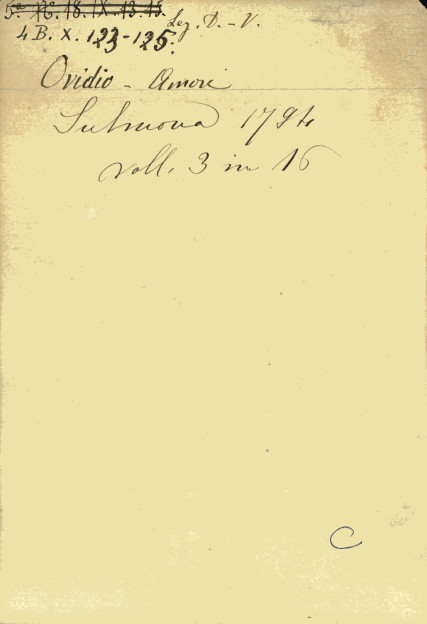 5ª N° 18. IX. 13. 15.
Leg. D. - V.
4 B. X. 123-125.
Ovidio - Amori
Sulmona 1794
voll. 3 in 16
C